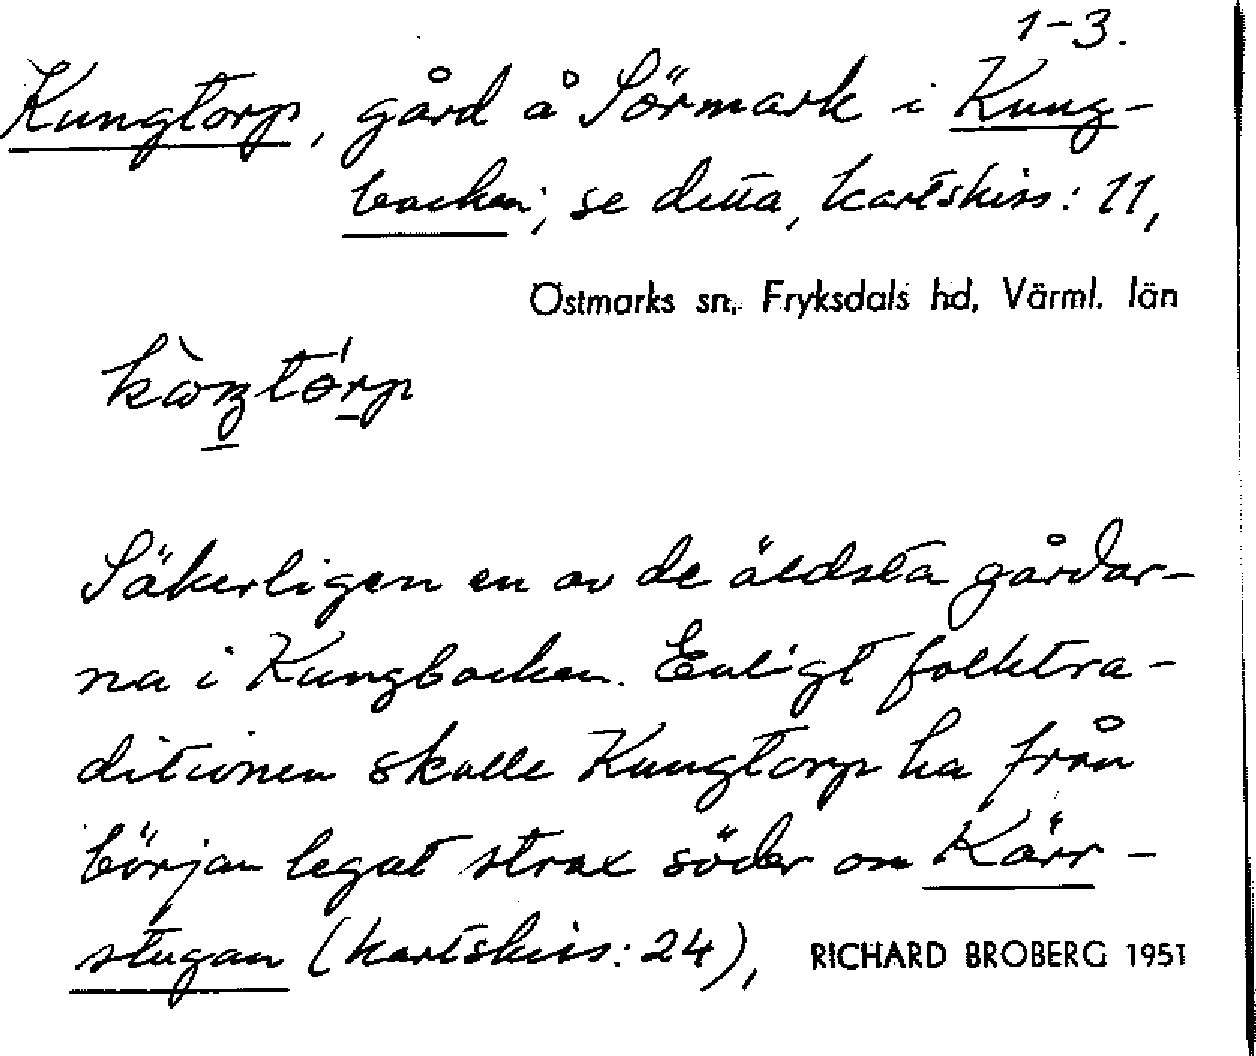 1-3.
Kungtorp, gård å Sörmark i Kung-
backen; se detta, kartskiss: 11,
Östmarks sn, Fryksdals hd, Värml. län
Säkerligen en av de äldsta gårdar-
na i Kungbacken. Enligt folktra-
ditionen skulle Kungtorp ha från
början legat strax söder om Kärr-
stugan (kartskiss: 24),
RICHARD BROBERG 1951